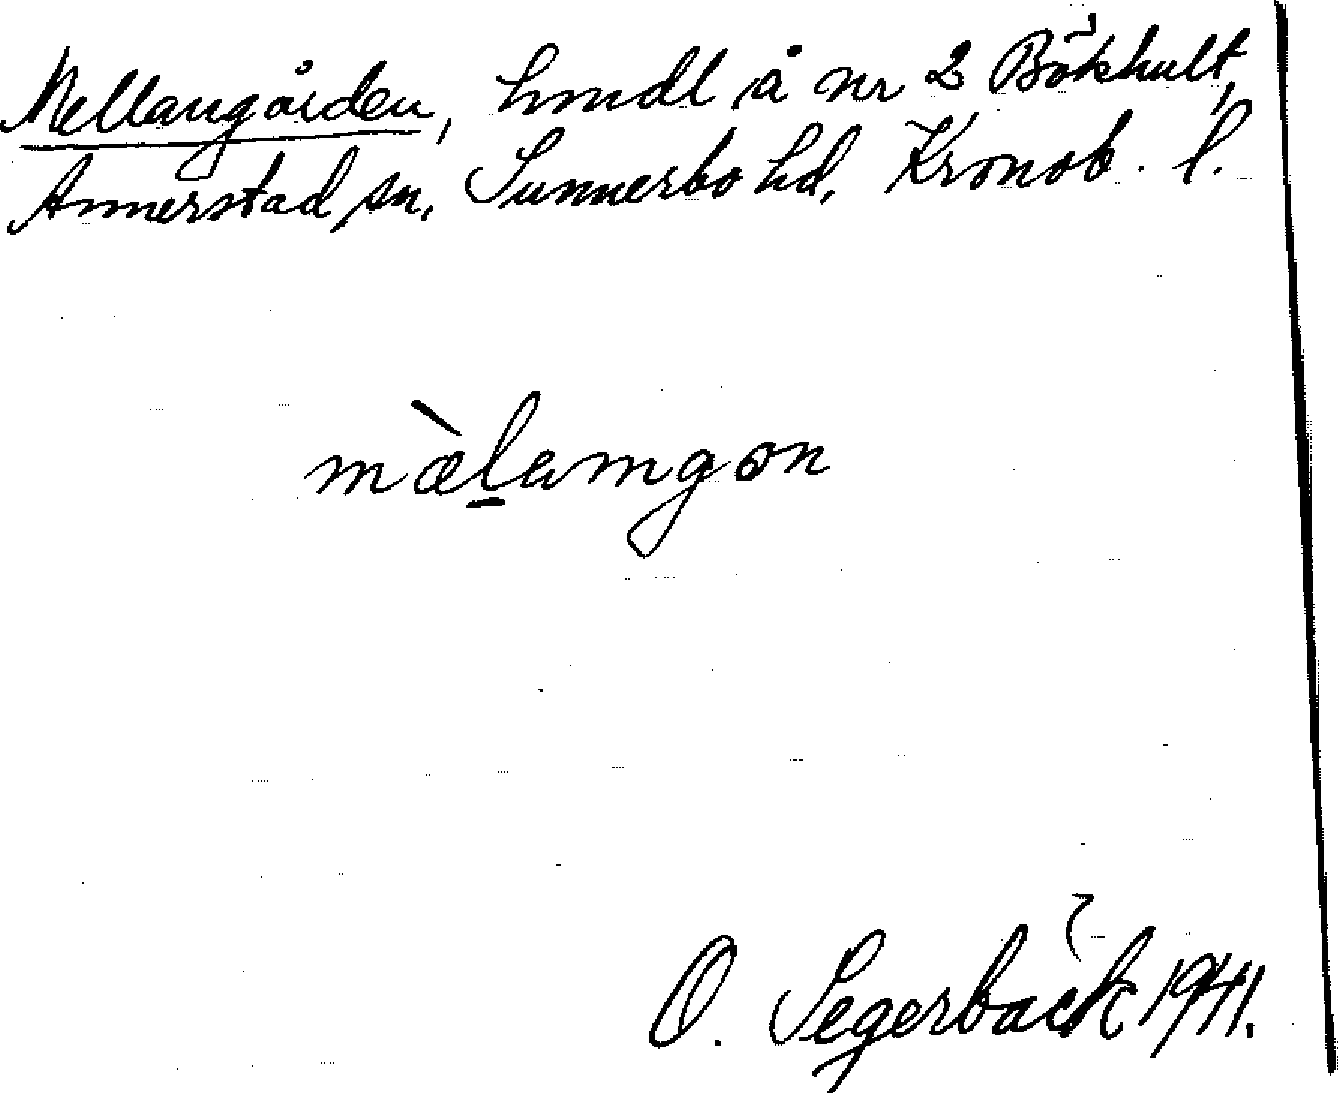 Mellangården, hmdl å nr 2 Bökhult,
Annerstad sn, Sunnerbo hd, Kronob. l.
mæ̀l̠amgon
O. Segerbäck 1941.